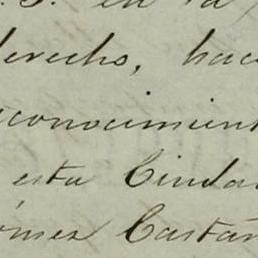 S. en la
derecho, hac
conocimient
esta Ciuda
ómez Castañ